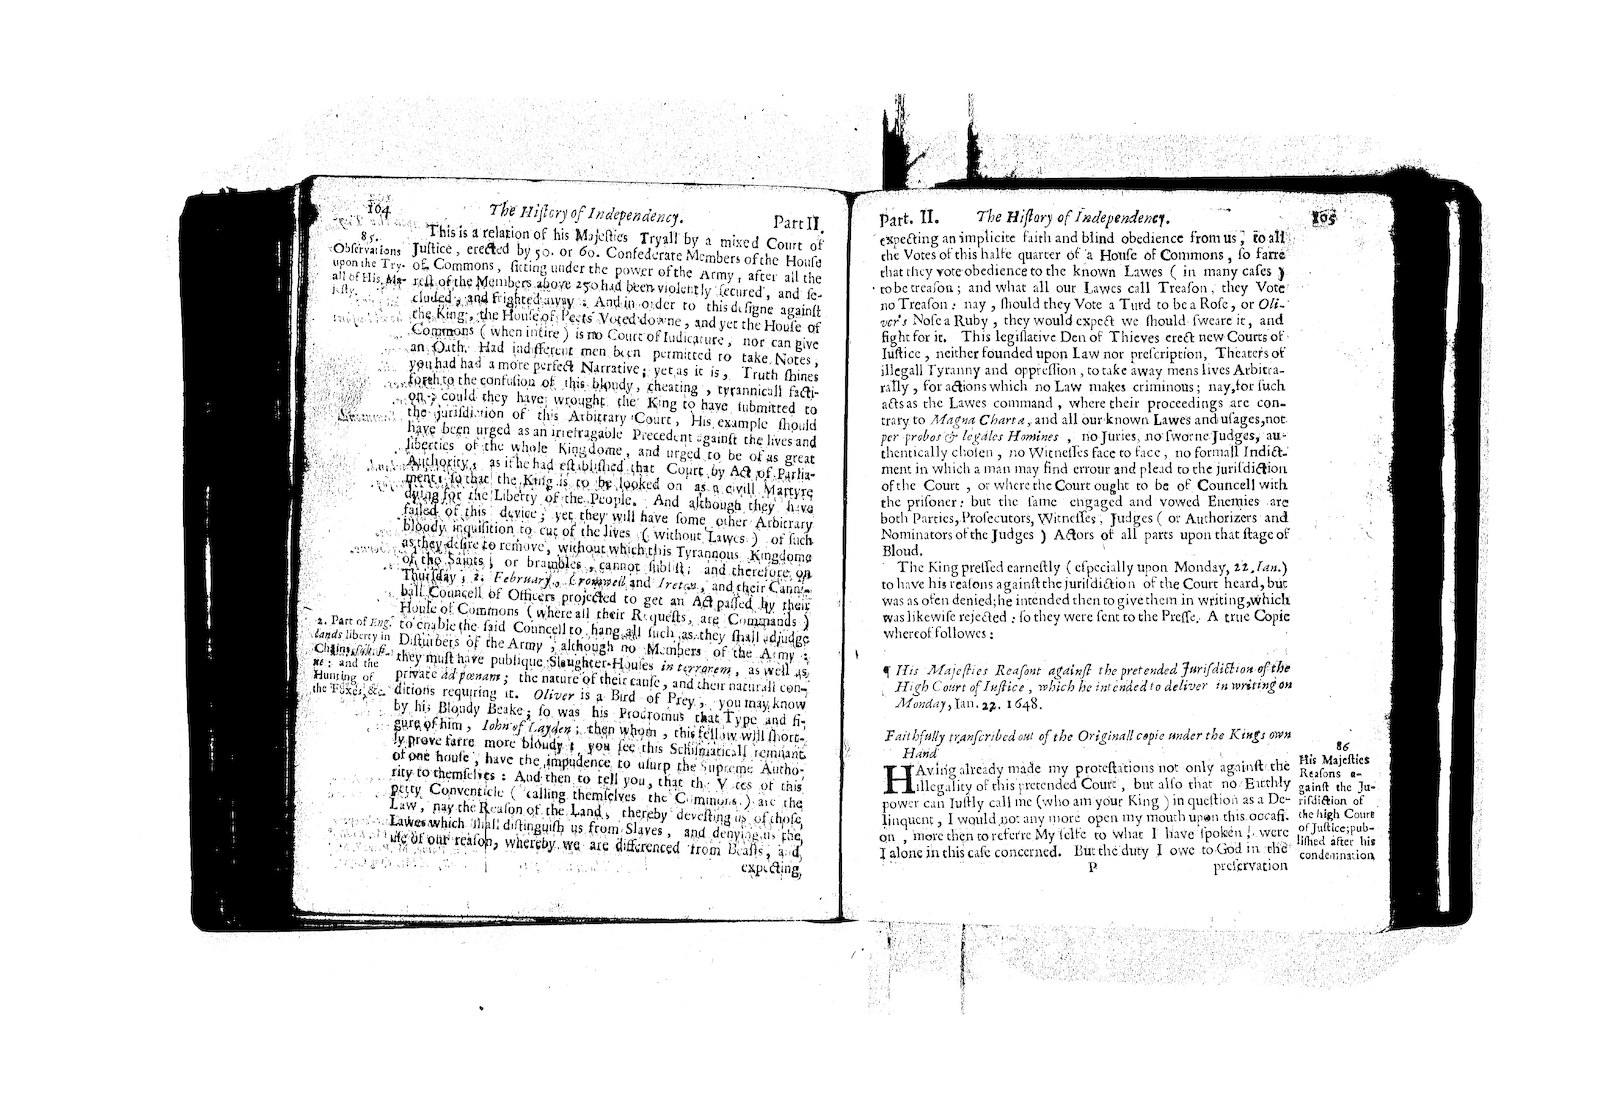 104
The Hiſtory of Independency.
Part II.
85.
Obſervations
upon the Try-
all of His Ma-
jeſty.
This is a relation of his Majeſties Tryall by a mixed Court of
Juſtice, erected by 50. or 60. Confederate Members of the Houſe
of Commons, ſitting under the power of the Army, after all the
reſt of the Members above 250 had been violently ſecured, and ſe-
cluded, and frighted away: And in order to this deſigne againſt
the King, the Houſe of Peets Voted downe, and yet the Houſe of
Commons (when intire) is no Court of Iudicature, nor can give
an Oath. Had indifferent men been permitted to take Notes,
you had had a more perfect Narrative; yet as it is, Truth ſhines
forth to the confuſion of this bloudy, cheating, tyrannicall facti-
on; could they have wrought the King to have ſubmitted to
the juriſdiction of this Arbitrary Court, His example ſhould
have been urged as an irrefragable Precedent againſt the lives and
liberties of the whole Kingdome, and urged to be of as great
Authority, as if he had eſtabliſhed that Court by Act of Parlia-
ment: ſo that the King is to be looked on as a civill Martyre
dying for the Liberty of the People. And although they have
failed of this device; yet they will have ſome other Arbitrary
bloody inquiſition to cut of the lives (without Lawes) of ſuch
as they deſire to remove, without which this Tyrannous Kingdome
of the Saints, or brambles, cannot ſubſiſt; and therefore on
Thurſday, 2. February, Cromwell and Ireton, and their Canni-
ball Councell of Officers projected to get an Act paſſed by their
Houſe of Commons (where all their Requeſts, are Commands)
to enable the ſaid Councell to hang all ſuch as they ſhall adjudge
Diſturbers of the Army, although no Members of the Army:
they muſt have publique Slaughter-Houſes in terrorem, as well as
private ad pœnam; the nature of their cauſe, and their naturall con-
ditions requiring it. Oliver is a Bird of Prey, you may know
by his Bloody Beake; ſo was his Prodromus that Type and fi-
gure of him, Iohn of Layden; then whom, this fellow will ſhort-
ly prove farre more bloudy: you ſee this Schiſmaticall remnant
of one houſe, have the impudence to uſurp the Supreme Autho-
rity to themſelves: And then to tell you, that the Votes of this
petty Conventicle (calling themſelves the Commons) are the
Law, nay the Reaſon of the Land, thereby deveſting us of thoſe
Lawes which ſhall diſtinguiſh us from Slaves, and denying us the
uſe of our reaſon, whereby we are differenced from Beaſts, and
expecting
2. Part of Eng-
lands liberty in
Chains,
ne: and the
Hunting of
the Foxes, &c.
Part. II.
The Hiſtory of Independency.
105
expecting an implicite faith and blind obedience from us, to all
the Votes of this halfe quarter of a Houſe of Commons, ſo farre
that they vote obedience to the known Lawes (in many caſes)
to be treaſon; and what all our Lawes call Treaſon, they Vote
no Treaſon: nay, ſhould they Vote a Turd to be a Roſe, or Oli-
ver's Noſe a Ruby, they would expect we ſhould ſweare it, and
fight for it. This legiſlative Den of Thieves erect new Courts of
Iuſtice, neither founded upon Law nor preſcription, Theaters of
illegall Tyranny and oppreſſion, to take away mens lives Arbitra-
rally, for actions which no Law makes criminous; nay, for ſuch
acts as the Lawes command, where their proceedings are con-
trary to Magna Charta, and all our known Lawes and uſages, not
per probos & legales Homines, no Juries, no ſworne Judges, au-
thentically choſen, no Witneſſes face to face, no formall Indict-
ment in which a man may find errour and plead to the juriſdiction
of the Court, or where the Court ought to be of Councell with
the priſoner: but the ſame engaged and vowed Enemies are
both Parties, Proſecutors, Witneſſes, Judges (or Authorizers and
Nominators of the Judges) Actors of all parts upon that ſtage of
Bloud.
The King preſſed earneſtly (eſpecially upon Monday, 22. Ian.)
to have his reaſons againſt the juriſdiction of the Court heard, but
was as often denied; he intended then to give them in writing, which
was likewiſe rejected: ſo they were ſent to the Preſſe. A true Copie
whereof followes:
¶ His Majeſties Reaſont againſt the pretended Jurifdiction of the
High Court of Iuſtice, which he intended to deliver in writing on
Monday, Ian. 22. 1648.
Faithfully tranſcribed out of the Originall copie under the Kings own
Hand
HAving already made my proteſtations not only againſt the
illegality of this pretended Court, but alſo that no Earthly
power can Iuſtly call me (who am your King) in queſtion as a De-
linquent, I would not any more open my mouth upon this occaſi-
on, more then to referre My ſelfe to what I have ſpoken, were
I alone in this caſe concerned. But the duty I owe to God in the
P
preſervation
86
His Majeſties
Reaſons a-
gainſt the Ju-
riſdiction of
the high Court
of Juſtice; pub-
liſhed after his
condemnation